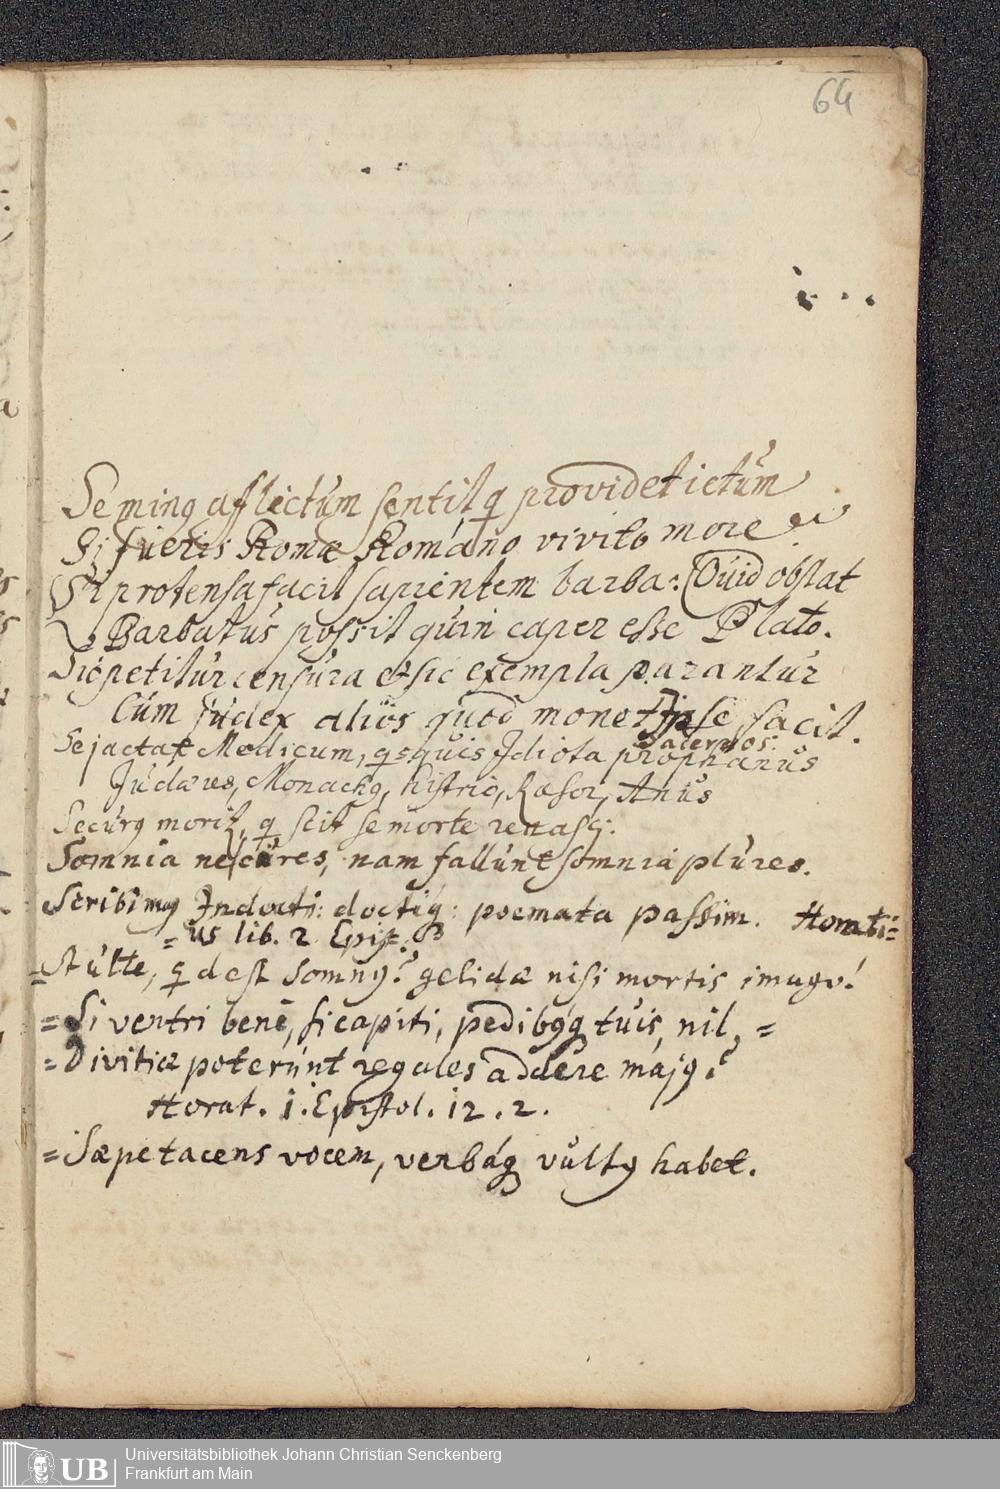 64
Se ming afflictum sentit q providet ictum
Si fueris Romæ Romano vivito more
Si protensa facit sapientem barba: Quid obstat
Barbatus possit quin caper esse Plato.
Sic petitur censura et sic exempla parantur
Cum judex aliios quod monet Ipse facit.
Se jactat Medicum, qsquis Idiota prophanus
Sacerdos:
Judæus, Monachg, histrio, Rasor, Anus
Securg morit, q scit se morte renasci.
Somnia ne cures, nam fallunt somnia plures.
Scribimg Indocti: doctiq: poemata passim. Horati=
=us lib. 2 Epist.
=Stulte, q d est somng? gelidæ nisi mortis imago!
=Si ventri bene, si capiti, pedibgq tuis, nil, =
=Divitiæ poterunt regales addere majg?
Horat. i. Epistol. i2. 2.
=Sæpe tacens vocem, verbáq vultg habet.
UB
Universitätsbibliothek Johann Christian Senckenberg
Frankfurt am Main